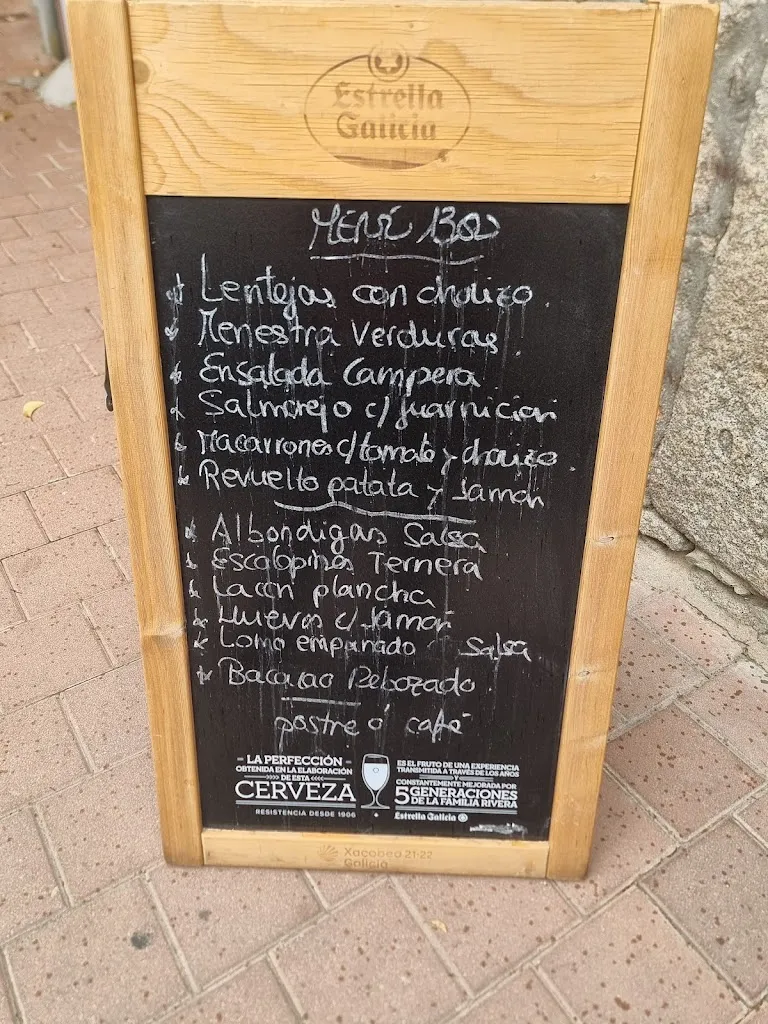 Estrella
Galicia
MENÚ 1300
Lentejas con chorizo
Menestra Verduras
Ensalada Campera
Salmorejo c/ guarnicion
Macarrones c/tomate y chorizo
Revuelto patata y Jamón
Albondigas Salsa
Escalopines Ternera
Lacon plancha
Huevos c/ Jamon
Lomo empanado Salsa
Bacalao Rebozado
postre ó café
LA PERFECCIÓN
OBTENIDA EN LA ELABORACIÓN
DE ESTA
CERVEZA
RESISTENCIA DESDE 1906
ES EL FRUTO DE UNA EXPERIENCIA
TRANSMITIDA A TRAVÉS DE LOS AÑOS
Y
CONSTANTEMENTE MEJORADA POR
5 GENERACIONES
DE LA FAMILIA RIVERA
Estrella Galicia
Xacobeo 21·22
Galicia